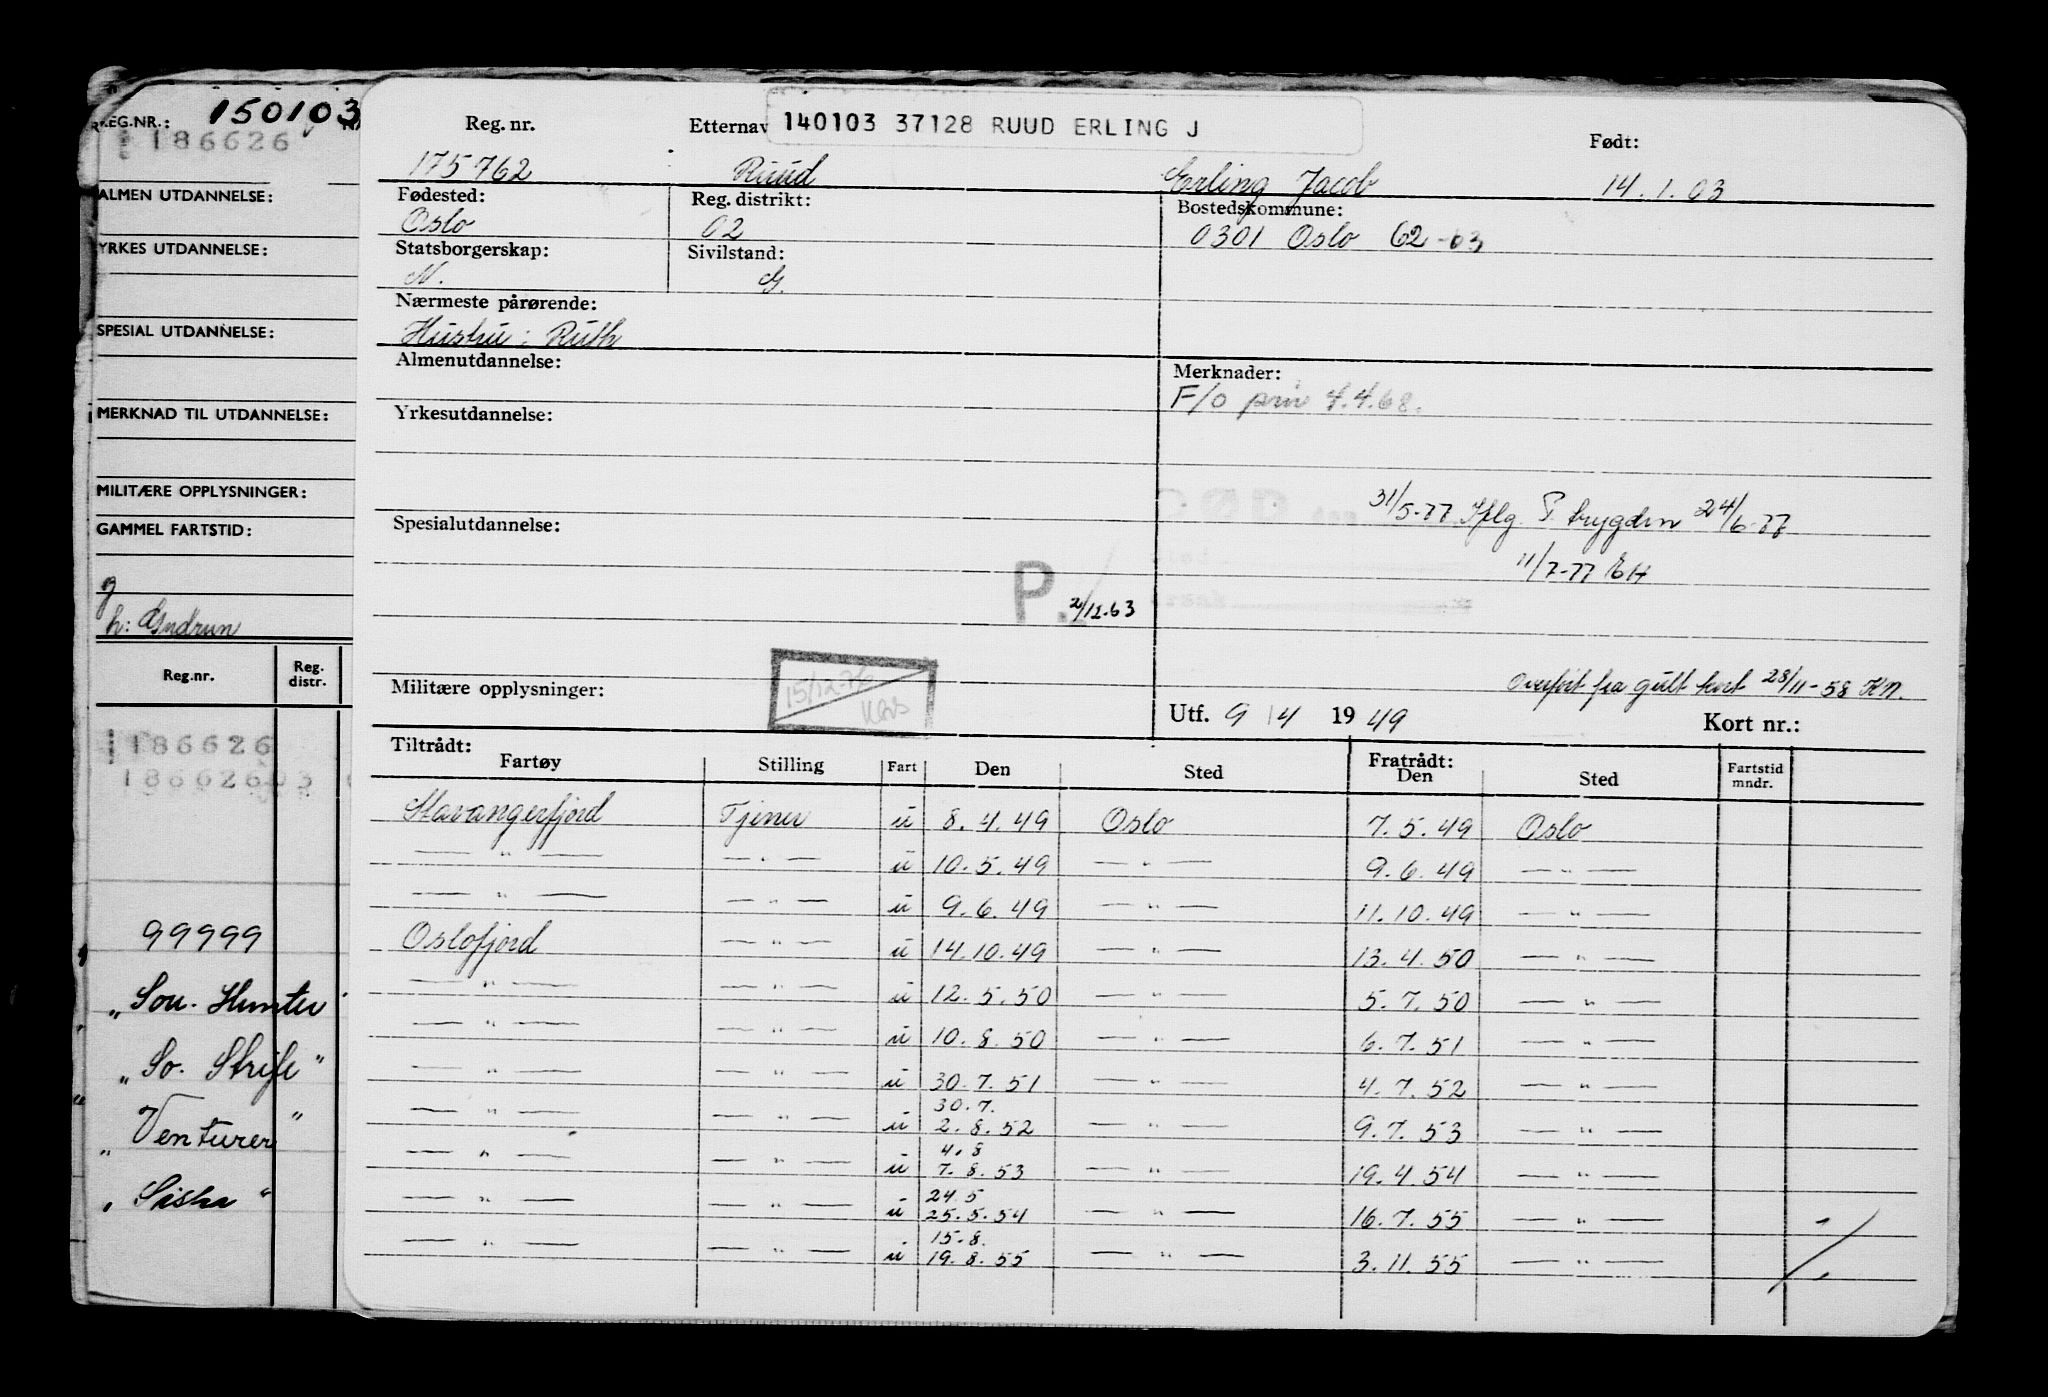 REG.NR.: 150103
186626
ALMEN UTDANNELSE:
YRKES UTDANNELSE:
SPESIAL UTDANNELSE:
MERKNAD TIL UTDANNELSE:
MILITÆRE OPPLYSNINGER:
GAMMEL FARTSTID:
g
h: Gudrun
Reg.nr. Reg. distr.
186626
18662603
99999
"Sou. Hunter
"So. Strife"
"Venturer"
"Siska"
140103 37128 RUUD ERLING J
Reg. nr. Etternav Født:
175762 Ruud Erling Jacob 14.1.03
Fødested: Reg. distrikt: Bostedskommune:
Oslo 02 0301 Oslo 62-63
Statsborgerskap: Sivilstand:
N. G.
Nærmeste pårørende:
Hustru: Ruth
Almenutdannelse: Merknader:
F/o 4.4.68.
Yrkesutdannelse:
31/5-77 P. trygden 24/6-77
Spesialutdannelse:
11/7-77 EH
P. 2/12.63
15/12-76
Militære opplysninger: Overført fra gult kort 28/11-58 KN.
Utf. 9/4 1949 Kort nr.:
Tiltrådt: Fratrådt:
Fartøy Stilling Fart Den Sted Den Sted Fartstid mndr.
Stavangerfjord Tjener u 8.4.49 Oslo 7.5.49 Oslo
— " — — " — u 10.5.49 — " — 9.6.49 — " —
— " — — " — u 9.6.49 — " — 11.10.49 — " —
Oslofjord — " — u 14.10.49 — " — 13.4.50 — " —
— " — — " — u 12.5.50 — " — 5.7.50 — " —
— " — — " — u 10.8.50 — " — 6.7.51 — " —
— " — — " — u 30.7.51 — " — 4.7.52 — " —
30.7.
— " — — " — u 2.8.52 — " — 9.7.53 — " —
4.8
— " — — " — u 7.8.53 — " — 19.4.54 — " —
24.5
— " — — " — u 25.5.54 — " — 16.7.55 — " —
15.8.
— " — — " — u 19.8.55 — " — 3.11.55 — " —